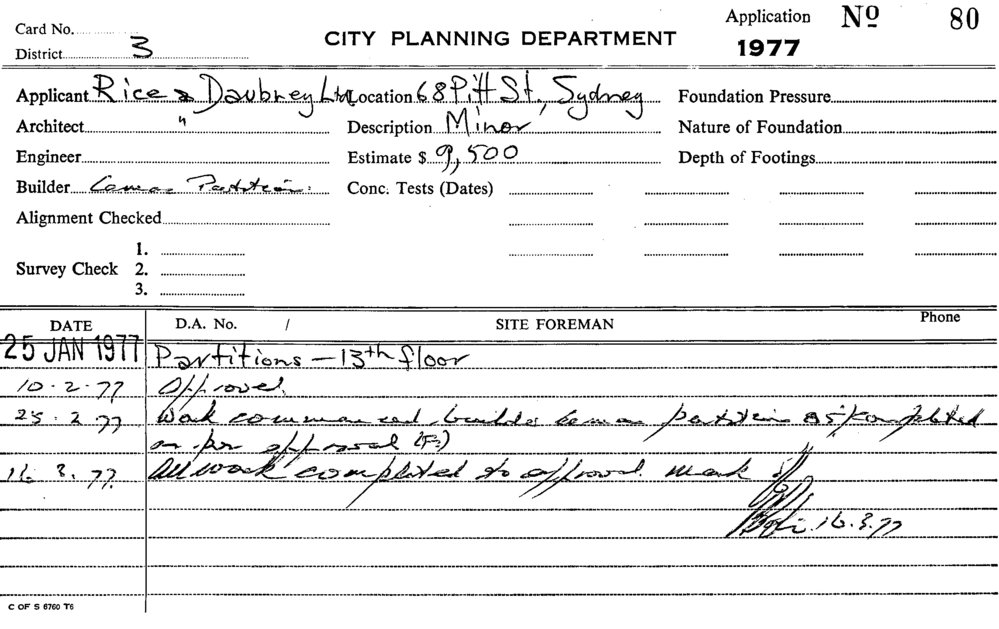 Card No.
Application No 80
District 3
CITY PLANNING DEPARTMENT
1977
Applicant Rice & Daubney Location 68 Pitt St, Sydney Foundation Pressure
Architect " Description Minor Nature of Foundation
Engineer Estimate $ 9,500 Depth of Footings
Builder Conc. Tests (Dates)
Alignment Checked
1.
Survey Check 2.
3.
DATE D.A. No. / SITE FOREMAN Phone
25 JAN 1977 Partitions - 13th floor
10.2.77 Approved.
25.2.77 Work commenced, builder completed
as per approval
16.3.77 All work completed to approval. mark
16.3.77
C OF S 6760 T6